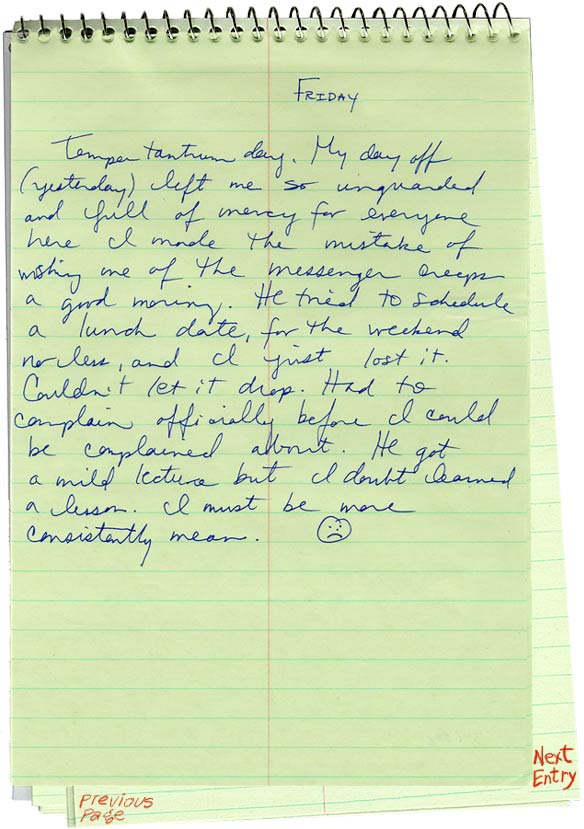 FRIDAY
Temper tantrum day. My day off
(yesterday) left me so unguarded
and full of mercy for everyone
here I made the mistake of
wishing one of the messenger creeps
a good morning. He tried to schedule
a lunch date, for the weekend
no less, and I just lost it.
Couldn't let it drop. Had to
complain officially before I could
be complained about. He got
a mild lecture but I doubt learned
a lesson. I must be more
consistently mean.
Next
Entry
Previous
Page